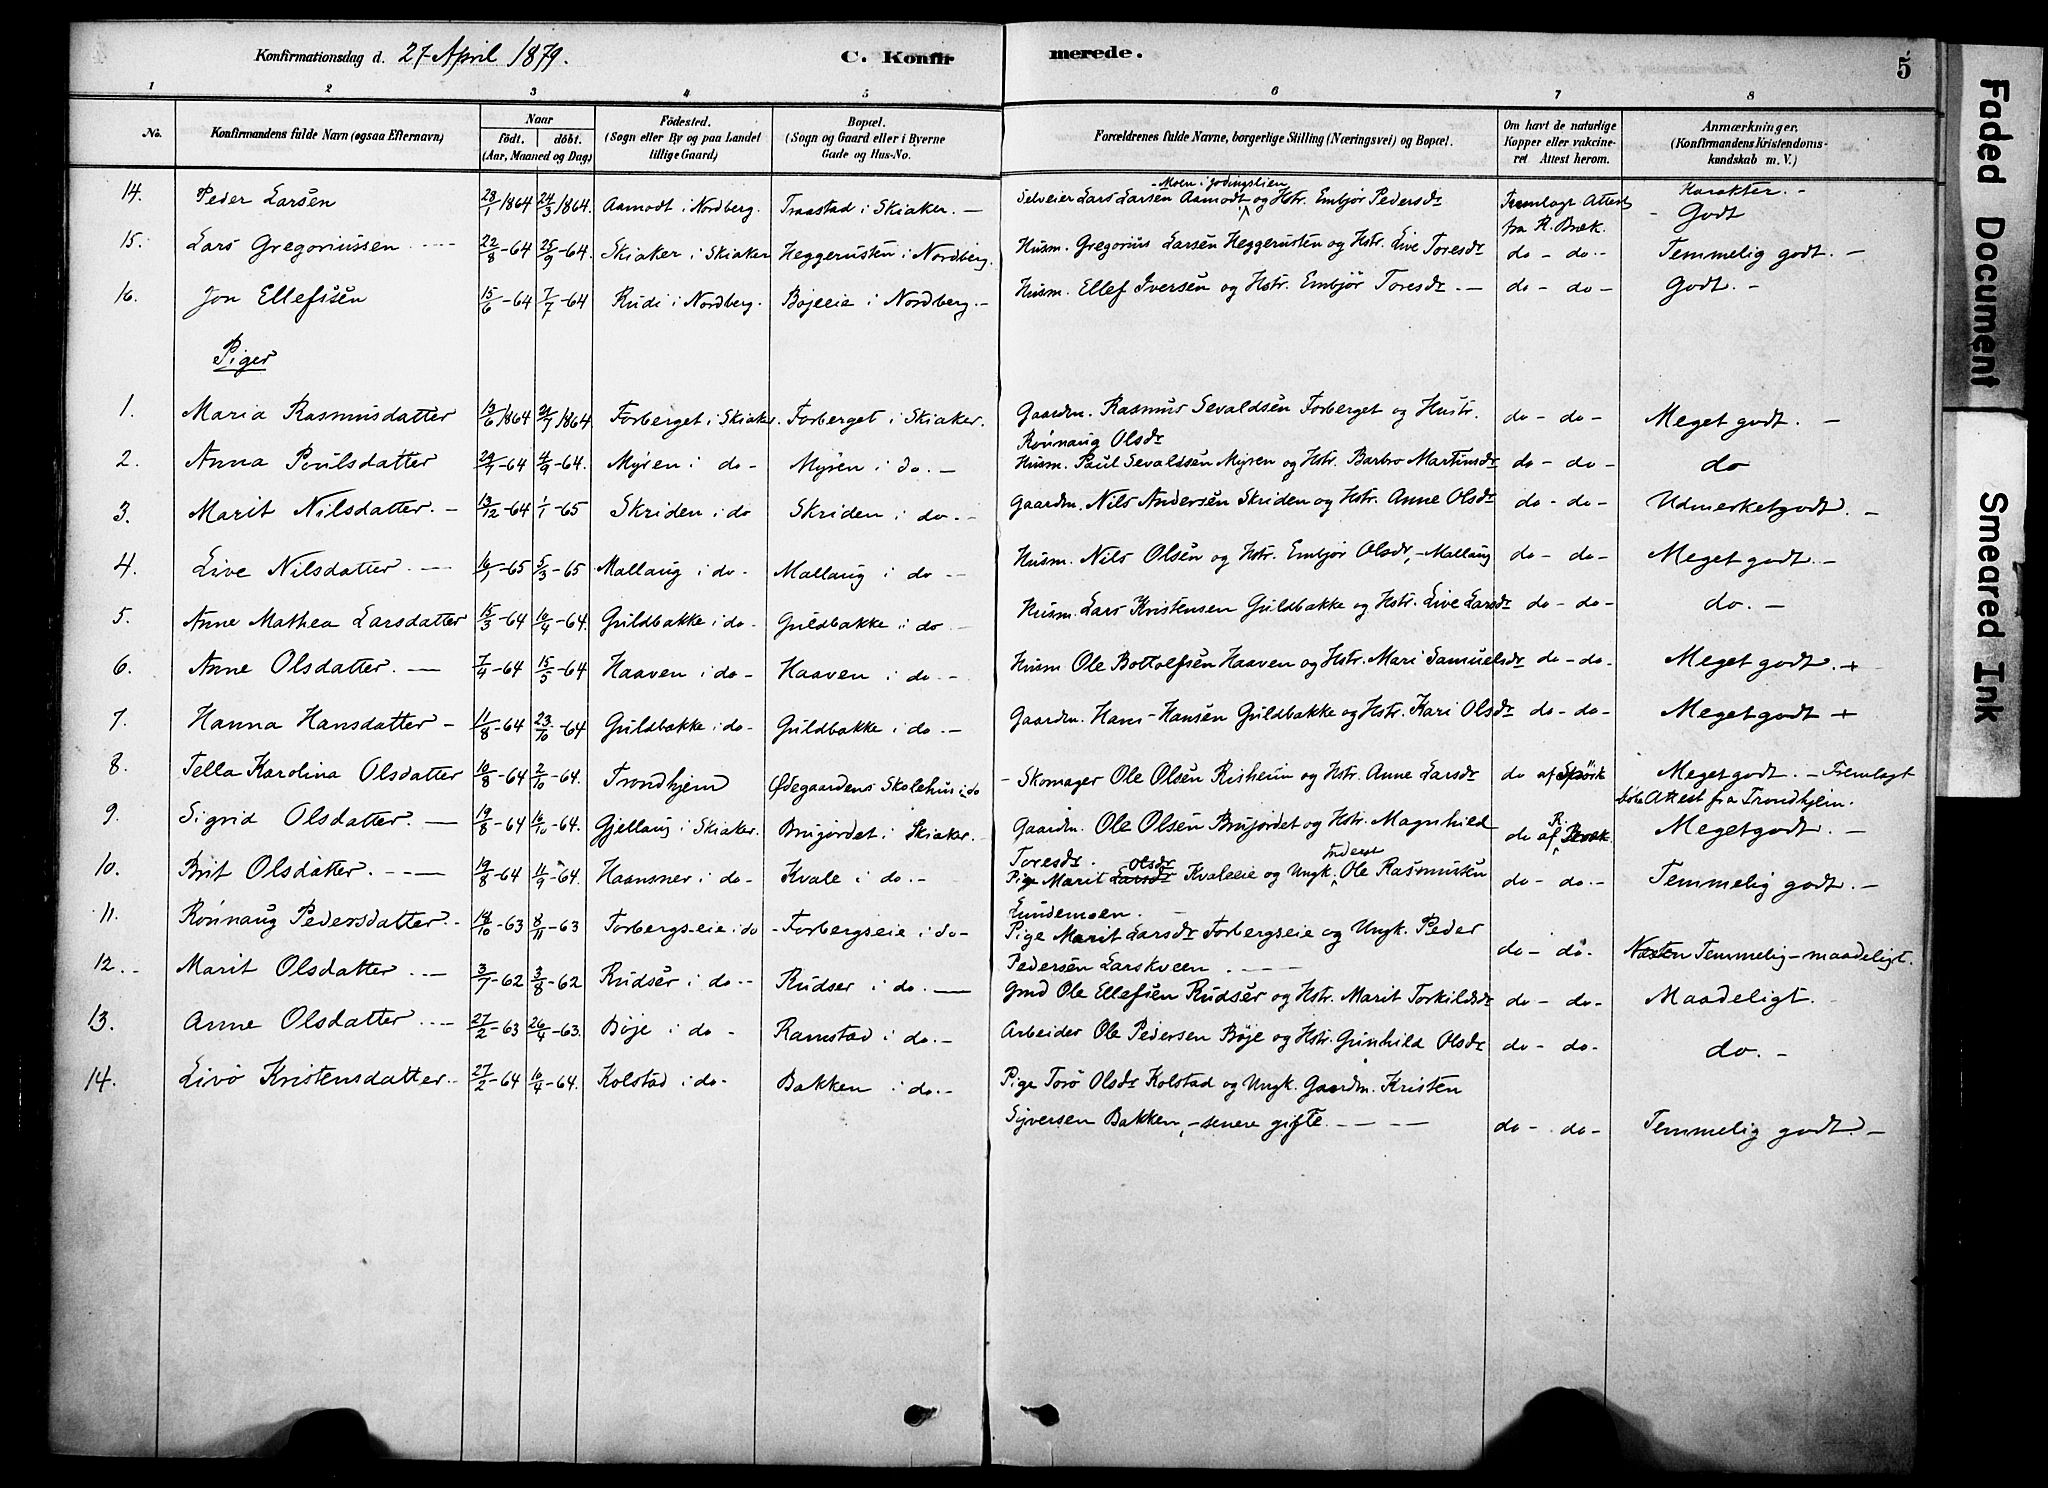 Konfirmationsdag d. 27 April 1879. C. Konfirmerede. 5
1 2 3 4 5 6 7 8
No. Konfirmandens fulde Navn (ogsaa Efternavn) Naar födt. döbt. (Aar, Maaned og Dag) Födested. (Sogn eller By og paa Landet tillige Gaard) Bopæl. (Sogn og Gaard eller i Byerne Gade og Hus-No. Forældrenes fulde Navne, borgerlige Stilling (Næringsvei) og Bopæl. Om havt de naturlige Kopper eller vakcineret Attest herom. Anmærkninger. (Konfirmandens Kristendomskundskab m. V.)
14. Peder Larsen 23/1 1864 24/3 1864. Aamodt i Nordberg. Traastad i Skiaker. — Selveier Lars Larsen Aamodt og Hstr. Embjør Pedersdr Fremlagt Attest fra R. Bræk. Karakter. - Godt
15. Lars Gregoriussen 22/8 -64 25/9 -64. Skiaker i Skiaker Heggerusten i Nordberg. Husm. Gregorius Larsen Heggerusten og Hstr. Live Toresdr do - do - Temmelig godt. -
16. Jon Ellefsen 15/6 -64 7/7 -64 Rudi i Nordberg. Bøjeeie i Nordberg. - Husm. Ellef Iversen og Hstr. Embjør Toresdr. - do - do - Godt. -
Piger
1. Maria Rasmusdatter 13/6 1864 31/7 1864 Forberget i Skiaker. Forberget i Skiaker. Gaardm. Rasmus Sevaldsen Forberget og Hustr. do - do - Meget godt. -
Rönnaug Olsdr
2. Anna Poulsdatter 29/7 -64 4/9 -64. Myren i do - Myren i do. - Husm. Paul Sevaldsen Myren og Hstr. Barbro Martinsdr do - do - do
3. Marit Nilsdatter. - 13/12 -64 1/1 -65 Skriden i do Skriden i do. - Gaardm. Nils Andersen Skriden og Hstr. Anne Olsdr do - do - Udmerketgodt. -
4. Live Nilsdatter. - 16/1 -65 5/3 -65 Mallaug i do - Mallaug i do - Husm. Nils Olsen og Hstr. Embjør Olsdr, - Mallaug do - do - Meget godt. -
5. Anne Mathea Larsdatter 15/3 -64 10/4 -64. Guldbakke i do - Guldbakke i do - Husm. Lars Kristensen Guldbakke og Hstr. Live Larsdr do - do - do. -
6. Anne Olsdatter. - 7/4 -64 15/5 -64 Haaven i do - Haaven i do. - Husm Ole Bottolfsen Haaven og Hstr. Mari Samuelsdr do - do - Meget godt. +
7. Hanna Hansdatter - 11/8 -64 23/10 -64 Guldbakke i do - Guldbakke i do. - Gaardm. Hans Hansen Guldbakke og Hstr. Kari Olsdr do - do - Meget godt +
8. Tella Karolina Olsdatter 10/8 -64 2/10 -64. Trondhjem Ødegaardens Skolehus i do - Skomager Ole Olsen Risheim og Hstr. Anne Larsdr do af Spörk Meget godt. - Fremlagt
Attest fra Trondhjem.
9. Sigrid Olsdatter. - 19/8 -64 16/10 -64. Gjellaug i Skiaker. Brujordet i Skiaker. Gaardm. Ole Olsen Brujordet og Hstr. Magnhild do af R. Bræk. Meget godt. -
Toresdr.
10. Brit Olsdatter. - 19/8 -64 11/9 -64. Haansner i do - Kvale i do. - Pige Marit Larsdr Olsdr Kvaleeie og Ungk. Inderst Ole Rasmussen do - do. - Temmelig godt. -
Lundemoen. -
11. Rönnaug Pedersdatter. - 18/10 -63 8/11 -63 Forbergseie i do - Forbergseie i do - Pige Marit Larsdr Forbergseie og Ungk. Peder do - do. Næsten Temmelig - maadeligt.
Pedersen Larskveen. -
12. Marit Olsdatter. - 3/7 -62 3/8 -62 Rudser i do. - Rudser i do. - Gmd Ole Ellefsen Rudser og Hstr. Marit Torkildsdr do - do - Maadeligt. -
13. Anne Olsdatter. - 27/2 -63 26/4 -63. Bøje i do - Ramstad i do. - Arbeider Ole Pedersen Bøje og Hstr. Gunhild Olsdr do - do - do. -
14. Livo Kristensdatter. 27/2 -64 10/4 -64. Kolstad i do - Bakken i do. - Pige Torø Olsdr Kolstad og Ungk. Gaardm. Kristen
Syversen Bakken, - senere gifte. - do - do - Temmelig godt. -
Faded Document
Smeared Ink